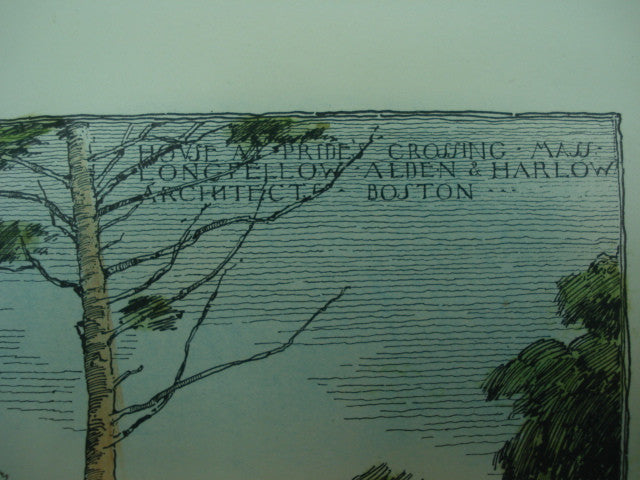 HOVSE AT PRIDE'S CROSSING · MASS ·
LONGFELLOW · ALDEN & HARLOW
ARCHITECTS · BOSTON ···